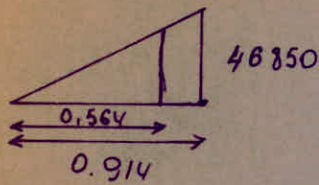 46850
0,564
0.914